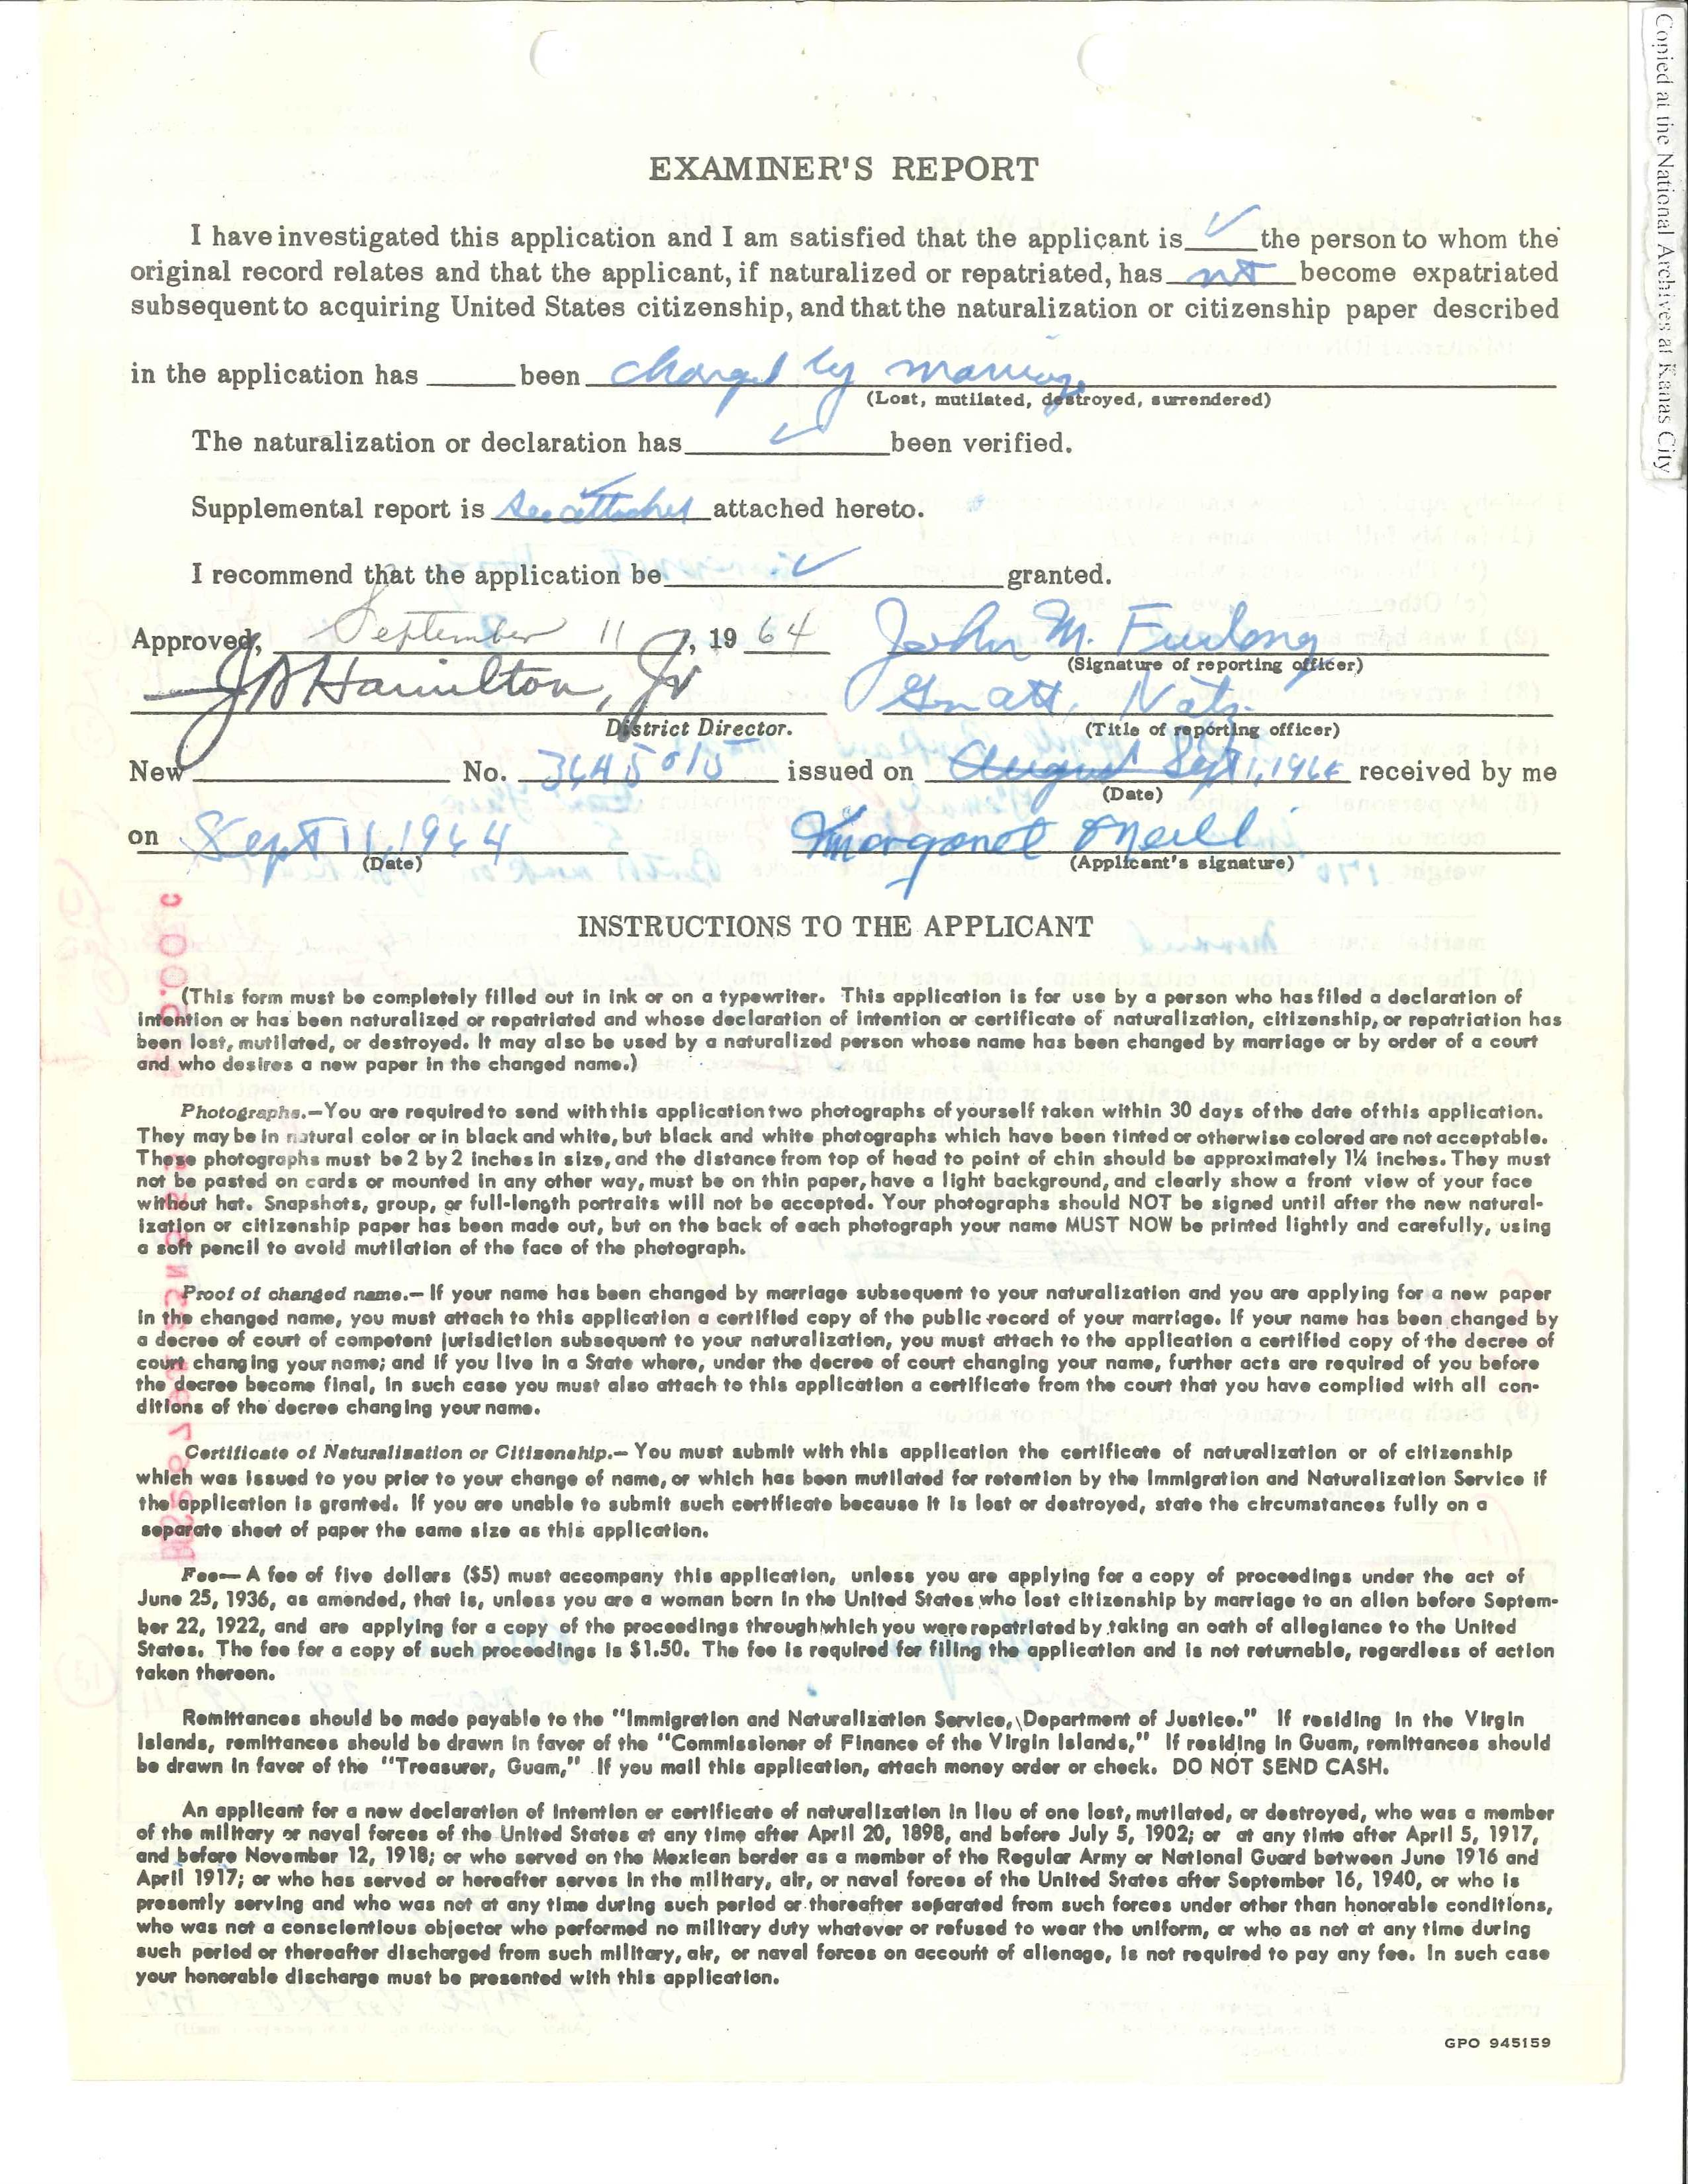 Copied at the National Archives at Kanas City
EXAMINER'S REPORT
I have investigated this application and I am satisfied that the applicant is ✓ the person to whom the
original record relates and that the applicant, if naturalized or repatriated, has not become expatriated
subsequent to acquiring United States citizenship, and that the naturalization or citizenship paper described
in the application has ____ been changed by marriage
(Lost, mutilated, destroyed, surrendered)
The naturalization or declaration has ✓ been verified.
Supplemental report is see attached attached hereto.
I recommend that the application be ✓ granted.
Approved, September 11, 1964 John M. Furlong
(Signature of reporting officer)
J Hamilton, Jr Gn att, Natz
District Director. (Title of reporting officer)
New ____ No. 3645015 issued on August Sept 1, 1964 received by me
(Date)
on Sept 11, 1964 Margaret O'Neill
(Date) (Applicant's signature)
INSTRUCTIONS TO THE APPLICANT
(This form must be completely filled out in ink or on a typewriter. This application is for use by a person who has filed a declaration of
intention or has been naturalized or repatriated and whose declaration of intention or certificate of naturalization, citizenship, or repatriation has
been lost, mutilated, or destroyed. It may also be used by a naturalized person whose name has been changed by marriage or by order of a court
and who desires a new paper in the changed name.)
Photographs.—You are required to send with this application two photographs of yourself taken within 30 days of the date of this application.
They may be in natural color or in black and white, but black and white photographs which have been tinted or otherwise colored are not acceptable.
These photographs must be 2 by 2 inches in size, and the distance from top of head to point of chin should be approximately 1¼ inches. They must
not be pasted on cards or mounted in any other way, must be on thin paper, have a light background, and clearly show a front view of your face
without hat. Snapshots, group, or full-length portraits will not be accepted. Your photographs should NOT be signed until after the new natural-
ization or citizenship paper has been made out, but on the back of each photograph your name MUST NOW be printed lightly and carefully, using
a soft pencil to avoid mutilation of the face of the photograph.
Proof of changed name.— If your name has been changed by marriage subsequent to your naturalization and you are applying for a new paper
in the changed name, you must attach to this application a certified copy of the public record of your marriage. If your name has been changed by
a decree of court of competent jurisdiction subsequent to your naturalization, you must attach to the application a certified copy of the decree of
court changing your name; and if you live in a State where, under the decree of court changing your name, further acts are required of you before
the decree become final, in such case you must also attach to this application a certificate from the court that you have complied with all con-
ditions of the decree changing your name.
Certificate of Naturalization or Citizenship.— You must submit with this application the certificate of naturalization or of citizenship
which was issued to you prior to your change of name, or which has been mutilated for retention by the Immigration and Naturalization Service if
the application is granted. If you are unable to submit such certificate because it is lost or destroyed, state the circumstances fully on a
separate sheet of paper the same size as this application.
Fee— A fee of five dollars ($5) must accompany this application, unless you are applying for a copy of proceedings under the act of
June 25, 1936, as amended, that is, unless you are a woman born in the United States who lost citizenship by marriage to an alien before Septem-
ber 22, 1922, and are applying for a copy of the proceedings through which you were repatriated by taking an oath of allegiance to the United
States. The fee for a copy of such proceedings is $1.50. The fee is required for filing the application and is not returnable, regardless of action
taken thereon.
Remittances should be made payable to the "Immigration and Naturalization Service, Department of Justice." If residing in the Virgin
Islands, remittances should be drawn in favor of the "Commissioner of Finance of the Virgin Islands," If residing in Guam, remittances should
be drawn in favor of the "Treasurer, Guam," If you mail this application, attach money order or check. DO NOT SEND CASH.
An applicant for a new declaration of intention or certificate of naturalization in lieu of one lost, mutilated, or destroyed, who was a member
of the military or naval forces of the United States at any time after April 20, 1898, and before July 5, 1902; or at any time after April 5, 1917,
and before November 12, 1918; or who served on the Mexican border as a member of the Regular Army or National Guard between June 1916 and
April 1917; or who has served or hereafter serves in the military, air, or naval forces of the United States after September 16, 1940, or who is
presently serving and who was not at any time during such period or thereafter separated from such forces under other than honorable conditions,
who was not a conscientious objector who performed no military duty whatever or refused to wear the uniform, or who as not at any time during
such period or thereafter discharged from such military, air, or naval forces on account of alienage, is not required to pay any fee. In such case
your honorable discharge must be presented with this application.
GPO 945159